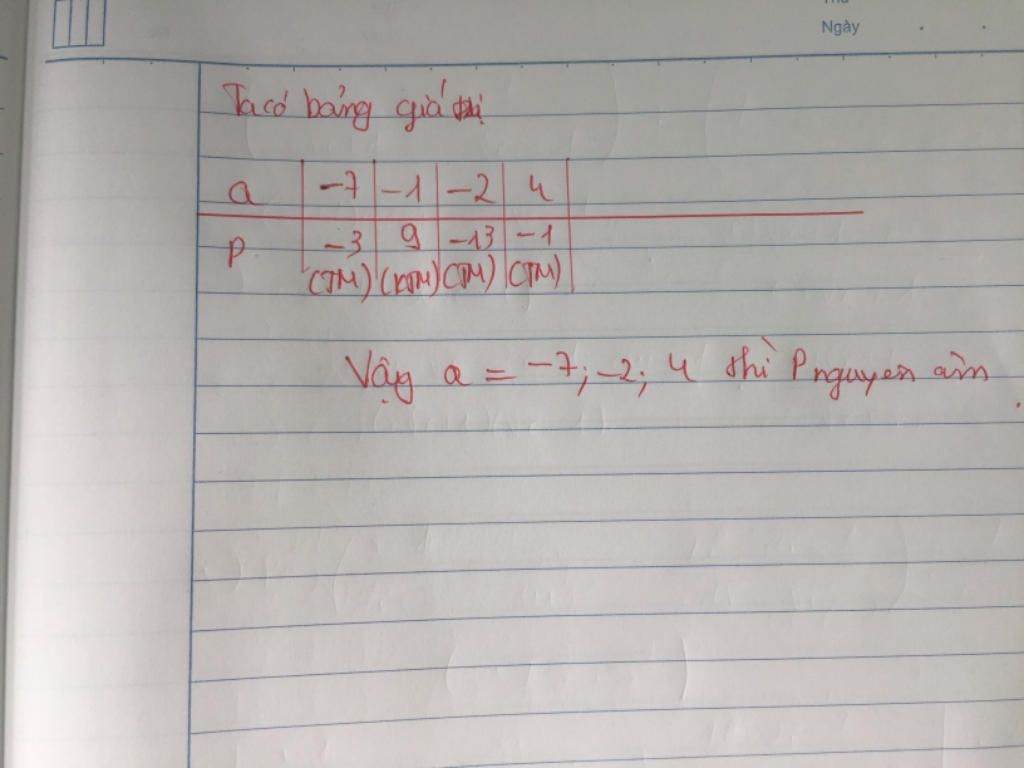 Ngày
Ta có bảng giá trị
a -7 -1 -2 4
P -3 9 -13 -1
(TM) (KTM) (TM) (TM)
Vậy a = -7; -2; 4 thì P nguyen âm